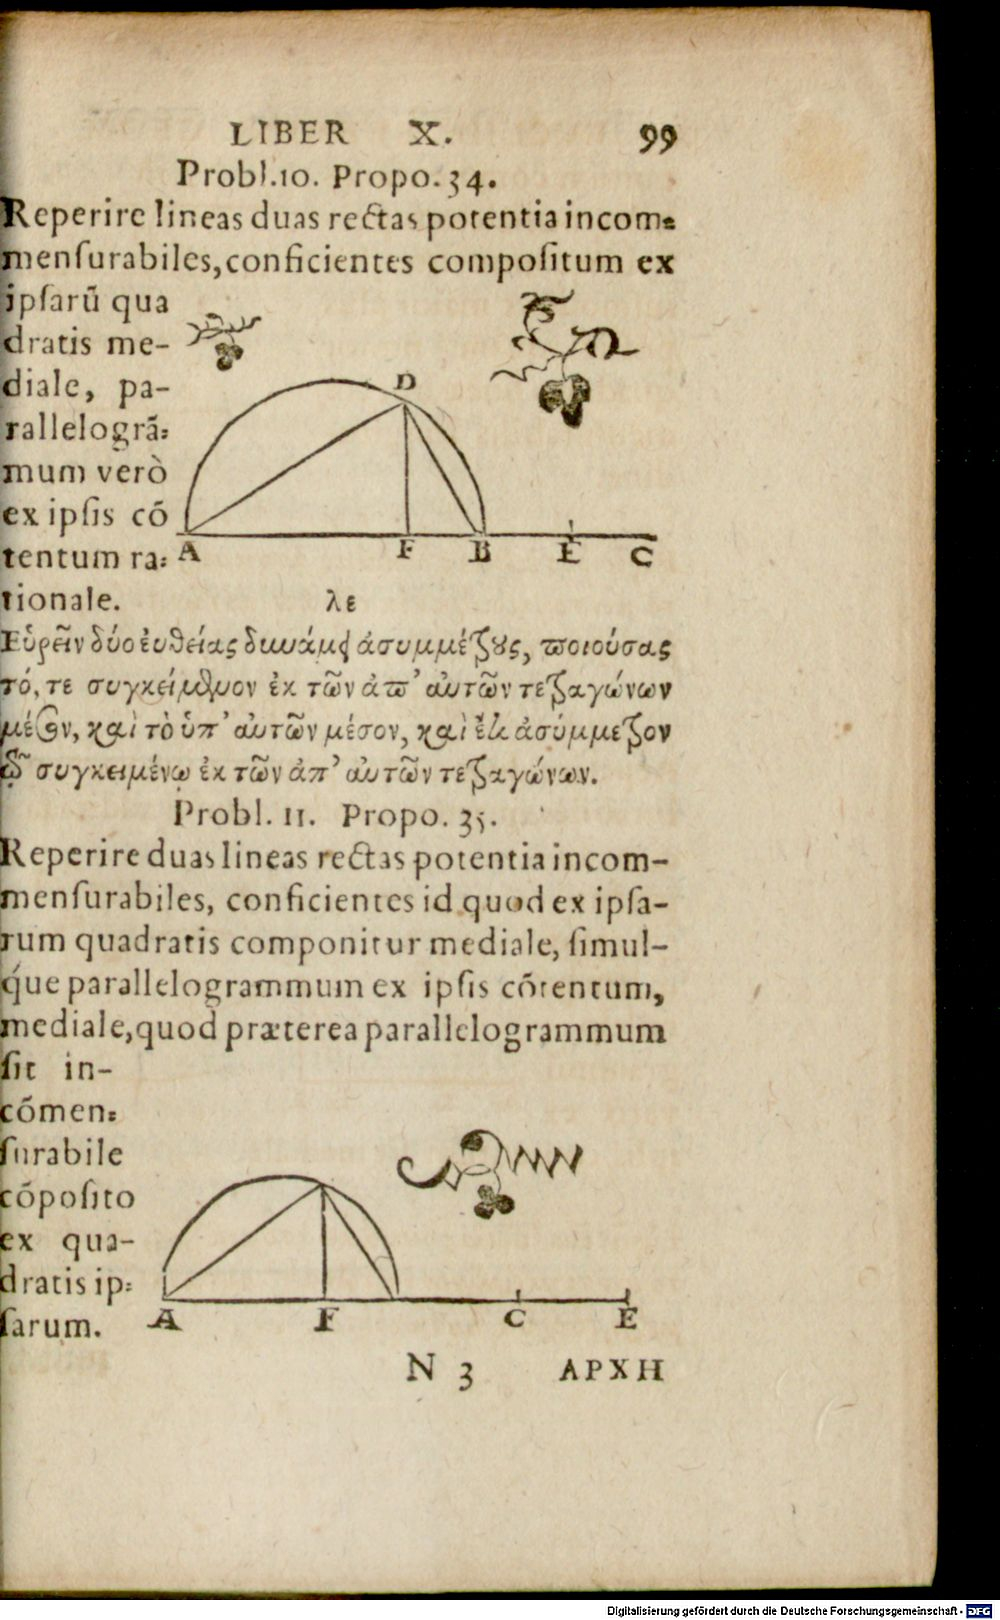 LIBER X. 99
Probl.10. Propo.34.
Reperire lineas duas rectas potentia incom⸗
menſurabiles, conficientes compoſitum ex
ipſarū qua
dratis me-
diale, pa-
rallelogrā⸗
mum verò
ex ipſis cō
tentum ra⸗
tionale.
D
A F B E C
λε
Εὑρεῖν δύο ἐυθείας δυνάμει ἀσυμμέτρους, ποιούσας
τό, τε συγκείμενον ἐκ τῶν ἀπ’ αὐτῶν τετραγώνων
μέσον, καὶ τὸ ὑπ’ αὐτῶν μέσον, καὶ ἔτι ἀσύμμετρον
τῷ συγκειμένῳ ἐκ τῶν ἀπ’ αὐτῶν τετραγώνων.
Probl. 11. Propo. 35.
Reperire duas lineas rectas potentia incom-
menſurabiles, conficientes id quod ex ipſa-
rum quadratis componitur mediale, ſimul-
q́ue parallelogrammum ex ipſis cōtentum,
mediale, quod præterea parallelogrammum
ſit in-
cōmen⸗
ſurabile
cōpoſito
ex qua-
dratis ip⸗
ſarum.
A F C E
N 3 ΑΡΧΗ
Digitalisierung gefördert durch die Deutsche Forschungsgemeinschaft - DFG